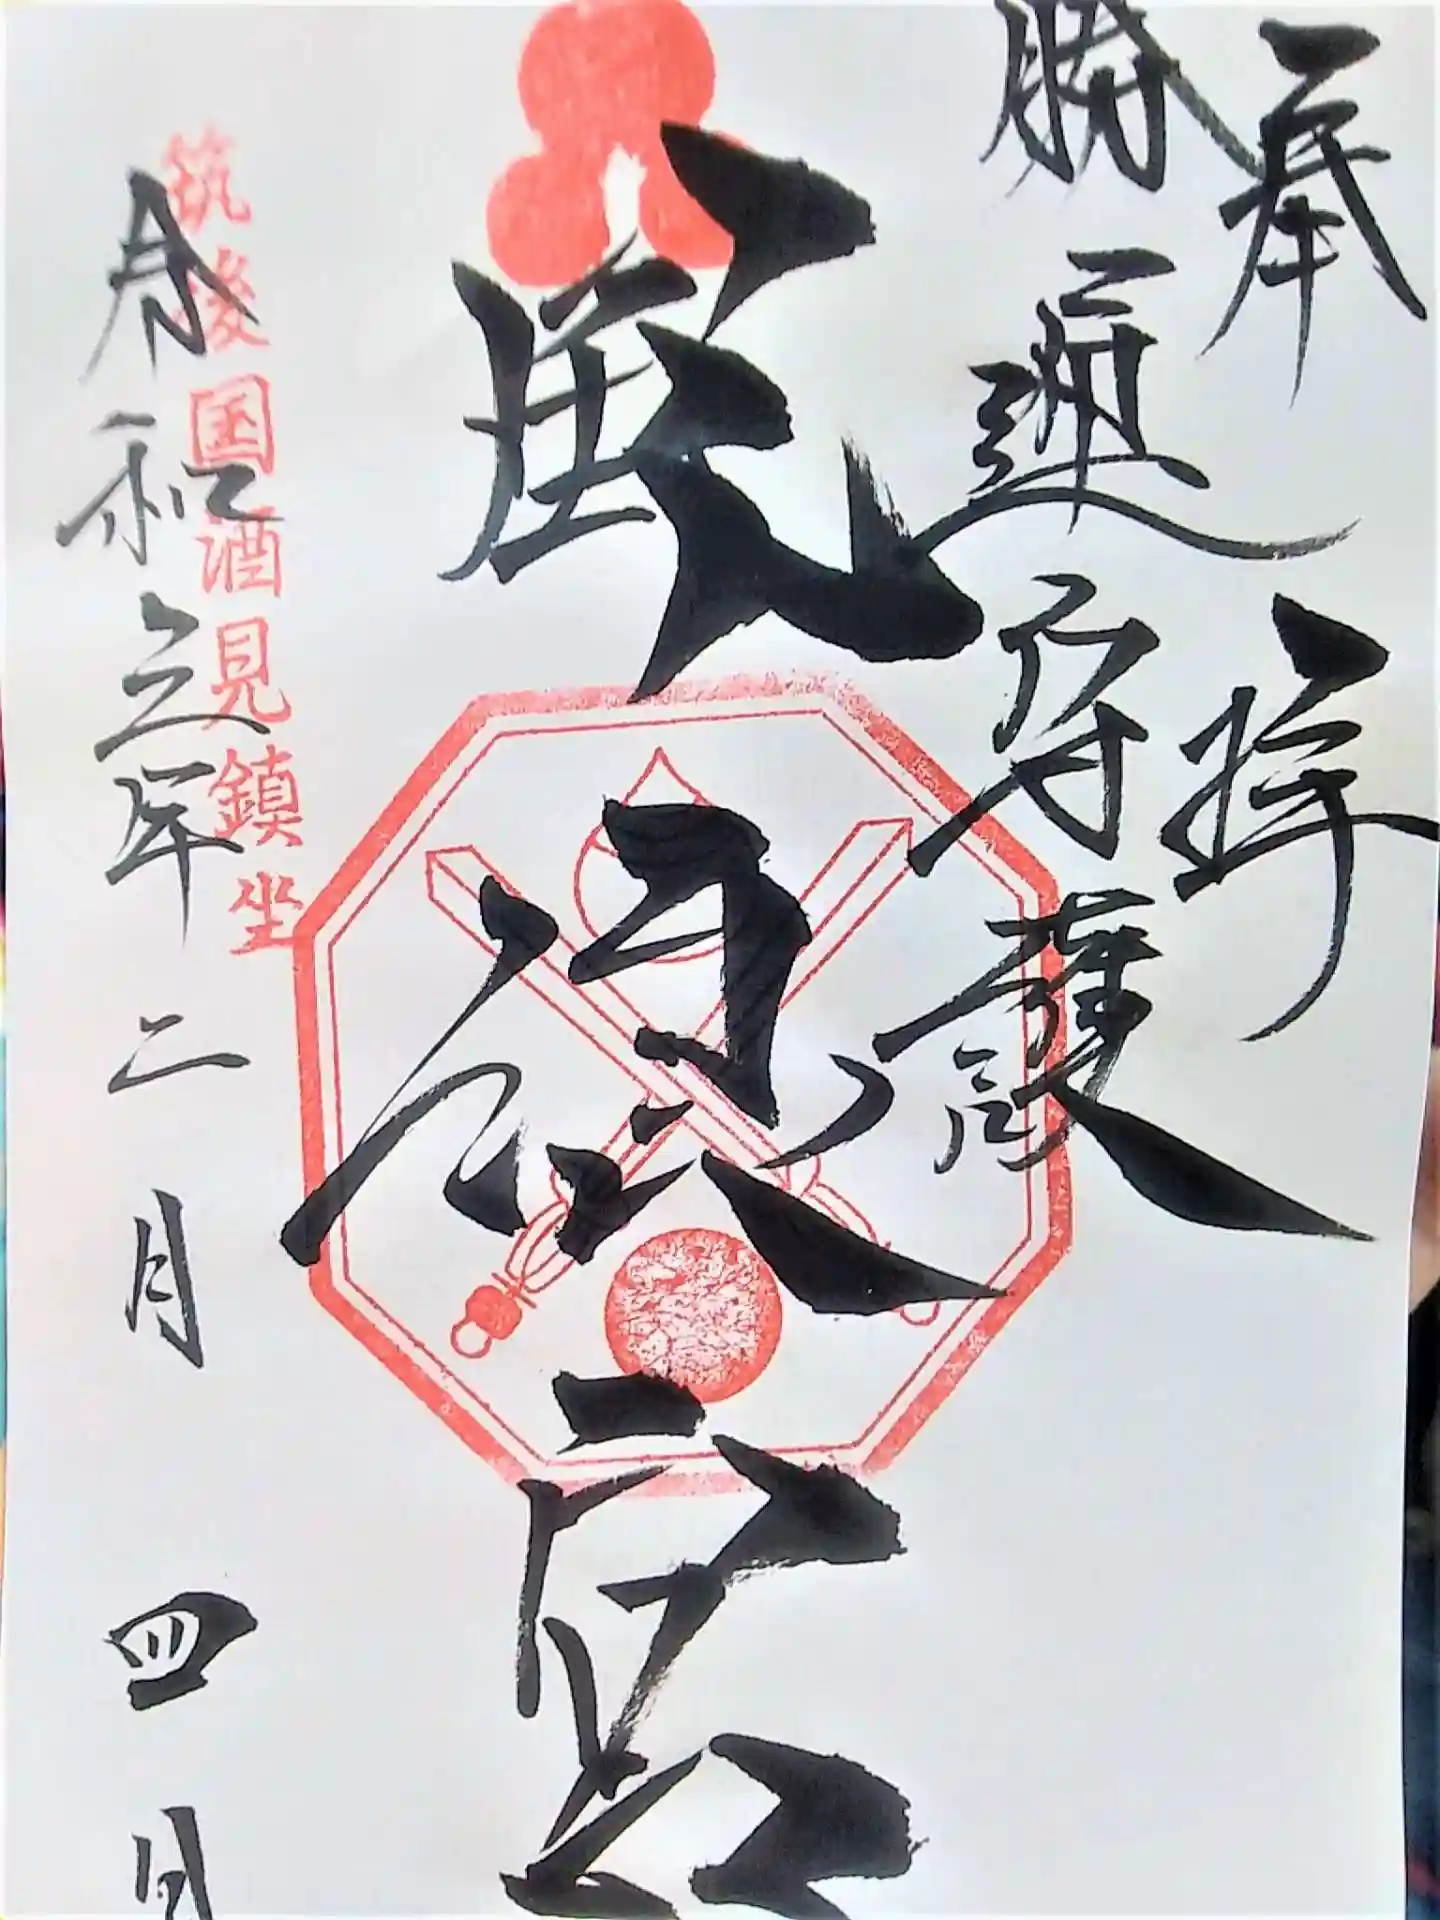 奉拝
勝運守護
風浪宮
筑後国酒見鎮坐
令和五年二月四日